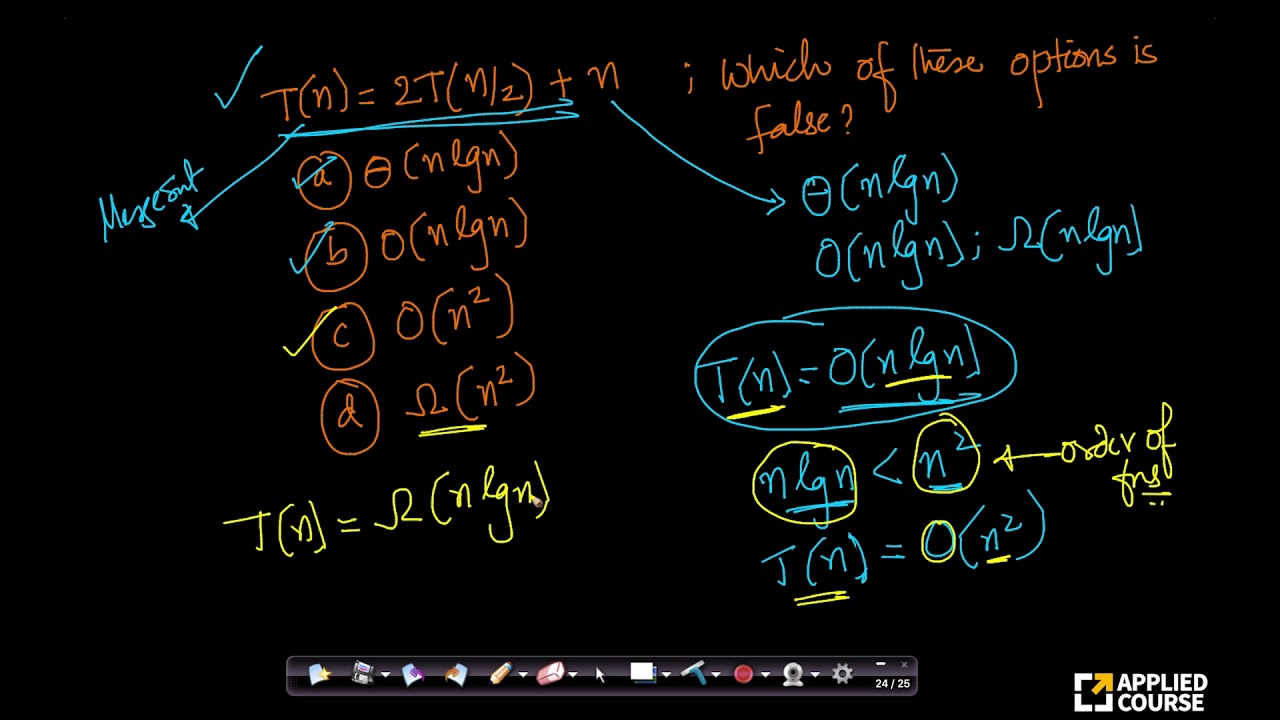 T(n) = 2T(n/2) + n ; which of these options is
false?
Mergesort
a Θ(n lgn)
b O(n lgn)
c O(n²)
d Ω(n²)
T(n) = Ω(n lgn)
Θ(n lgn)
O(n lgn) ; Ω(n lgn)
T(n) = O(n lgn)
n lgn < n² ← order of
fns
T(n) = O(n²)
24 / 25
APPLIED
COURSE